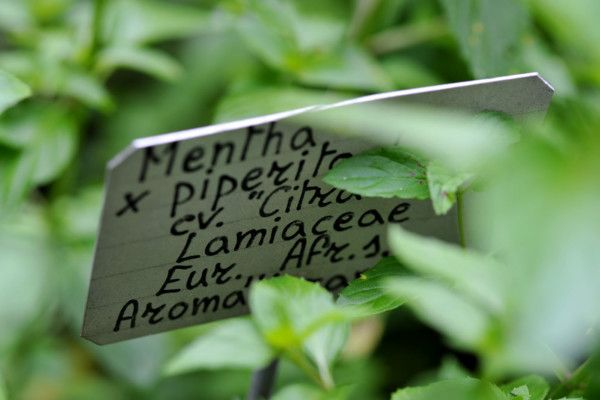 Mentha
x piperita
cv. "Citra
Lamiaceae
Eur., Afr. s.
Aroma